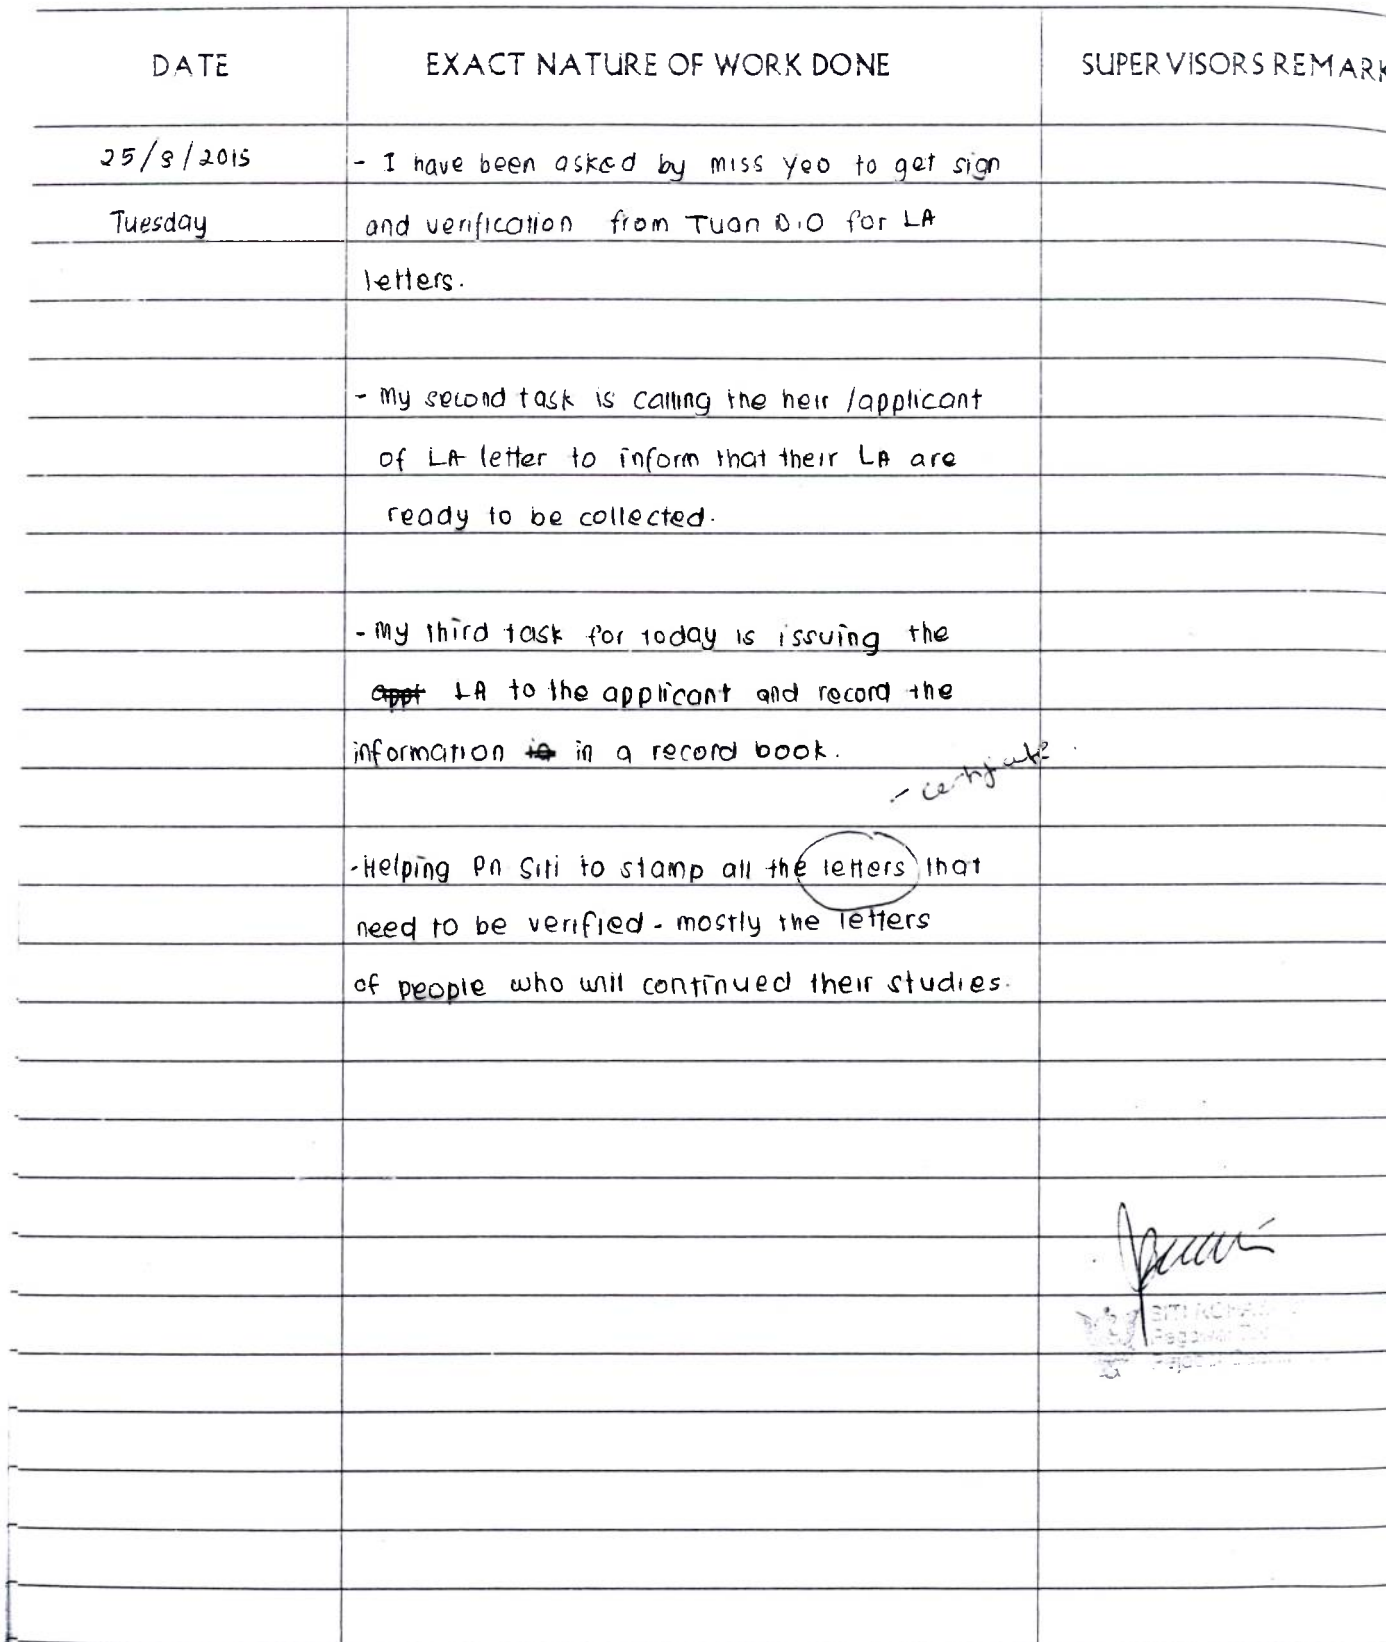 DATE EXACT NATURE OF WORK DONE SUPERVISORS REMARK
25/8/2015 - I have been asked by miss yeo to get sign
Tuesday and verification from Tuan D.O for LA
letters.
- My second task is calling the heir /applicant
of LA letter to inform that their LA are
ready to be collected.
- My third task for today is issuing the
appt LA to the applicant and record the
information in a record book.
- certificate?
- Helping Pn Siti to stamp all the letters that
need to be verified - mostly the letters
of people who will continued their studies.
SITI